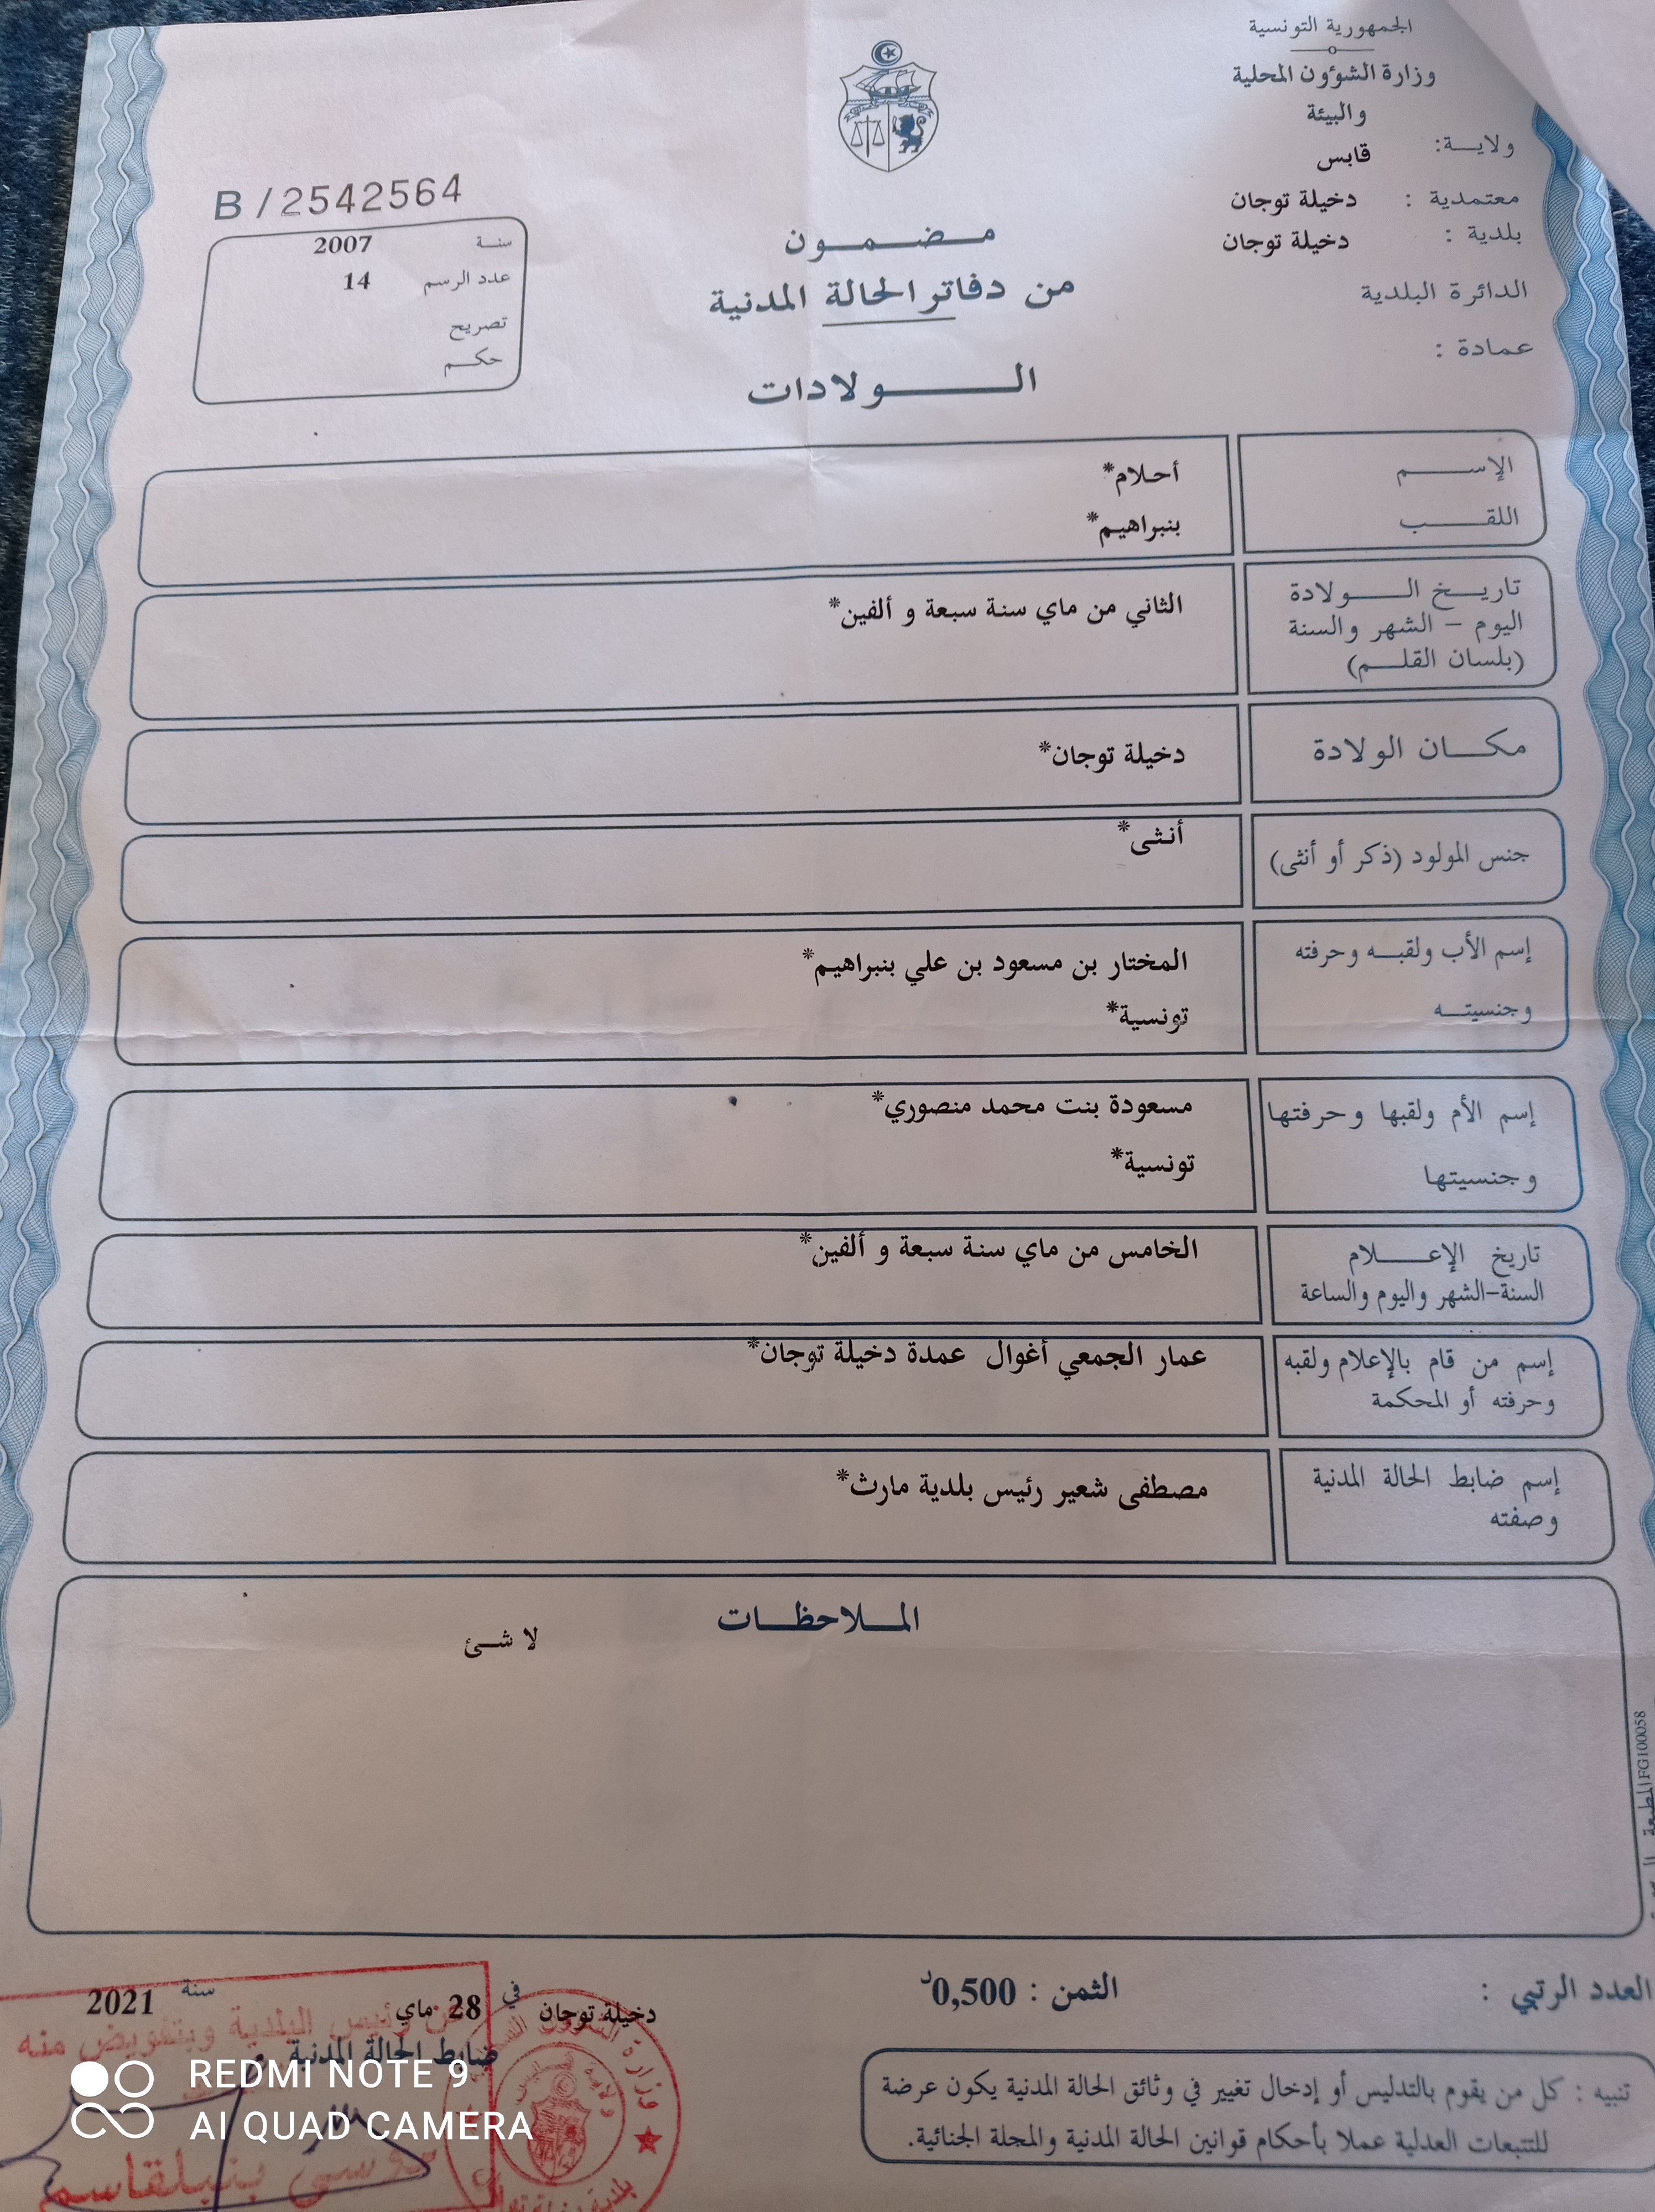 الجمهورية التونسية
وزارة الشؤون المحلية
والبيئة
ولاية: قابس
معتمدية : دخيلة توجان
بلدية : دخيلة توجان
الدائرة البلدية
عمادة :
B/2542564
سنة 2007
عدد الرسم 14
تصريح
حكم
مضمون
من دفاتر الحالة المدنية
الولادات
الإسم أحلام*
اللقب بنبراهيم*
تاريخ الولادة
اليوم - الشهر والسنة
(بلسان القلم)
الثاني من ماي سنة سبعة و ألفين*
مكان الولادة دخيلة توجان*
جنس المولود (ذكر أو أنثى) أنثى*
إسم الأب ولقبه وحرفته
وجنسيته
المختار بن مسعود بن علي بنبراهيم*
تونسية*
إسم الأم ولقبها وحرفتها
وجنسيتها
مسعودة بنت محمد منصوري*
تونسية*
تاريخ الإعلام
السنة-الشهر واليوم والساعة
الخامس من ماي سنة سبعة و ألفين*
إسم من قام بالإعلام ولقبه
وحرفته أو المحكمة
عمار الجمعي أغوال عمدة دخيلة توجان*
إسم ضابط الحالة المدنية
وصفته
مصطفى شعير رئيس بلدية مارث*
الملاحظات
لا شئ
FG100058 المطبعة
العدد الرتبي :
الثمن : 0,500د
دخيلة توجان في 28 ماي سنة 2021
ضابط الحالة المدنية
رئيس البلدية وبتفويض منه
بنبلقاسم
تنبيه : كل من يقوم بالتدليس أو إدخال تغيير في وثائق الحالة المدنية يكون عرضة
للتتبعات العدلية عملا بأحكام قوانين الحالة المدنية والمجلة الجنائية.
REDMI NOTE 9
AI QUAD CAMERA